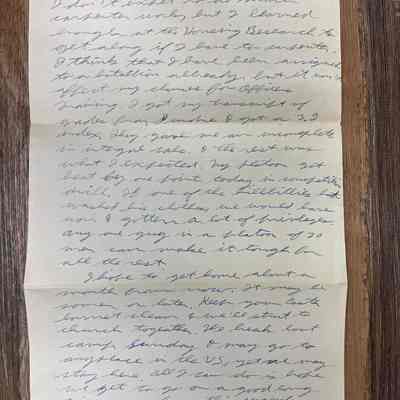 I don't expect to do much
carpenter work, but I learned
enough at the Housing Research to
get along if I have to carpenter.
I think that I have been assigned
to a battalion already, but it won't
affect my chances for Officers
training. I got my transcript of
grades from Purdue & got a 5.2
index, they gave me an incomplete
in integral calc. & the rest was
what I expected. My platoon got
beat by one point today in competition
drill. If one of the hillbillies had
washed his clothes, we would have
won & gotten a lot of privileges
any one guy in a platoon of 70
men can make it tough for
all the rest.
I hope to get home about a
month from now. It may be
sooner or later. Keep your Easter
bonnet clean & we'll start to
church together. We break boot
camp Sunday & may go to
anyplace in the U.S. yet we may
stay here. All I can do is hope
we get to go on a good long